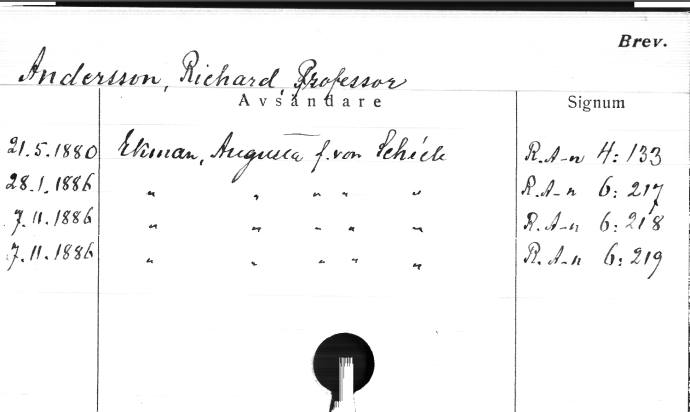 Brev.
Andersson, Richard, Professor
Avsändare Signum
21.5.1880 Ekman, Augusta f. von Schéele R.A-n 4:133
28.1.1886 " " " " " R.A-n 6:217
7.11.1886 " " " " " R.A-n 6:218
7.11.1886 " " " " " R.A-n 6:219